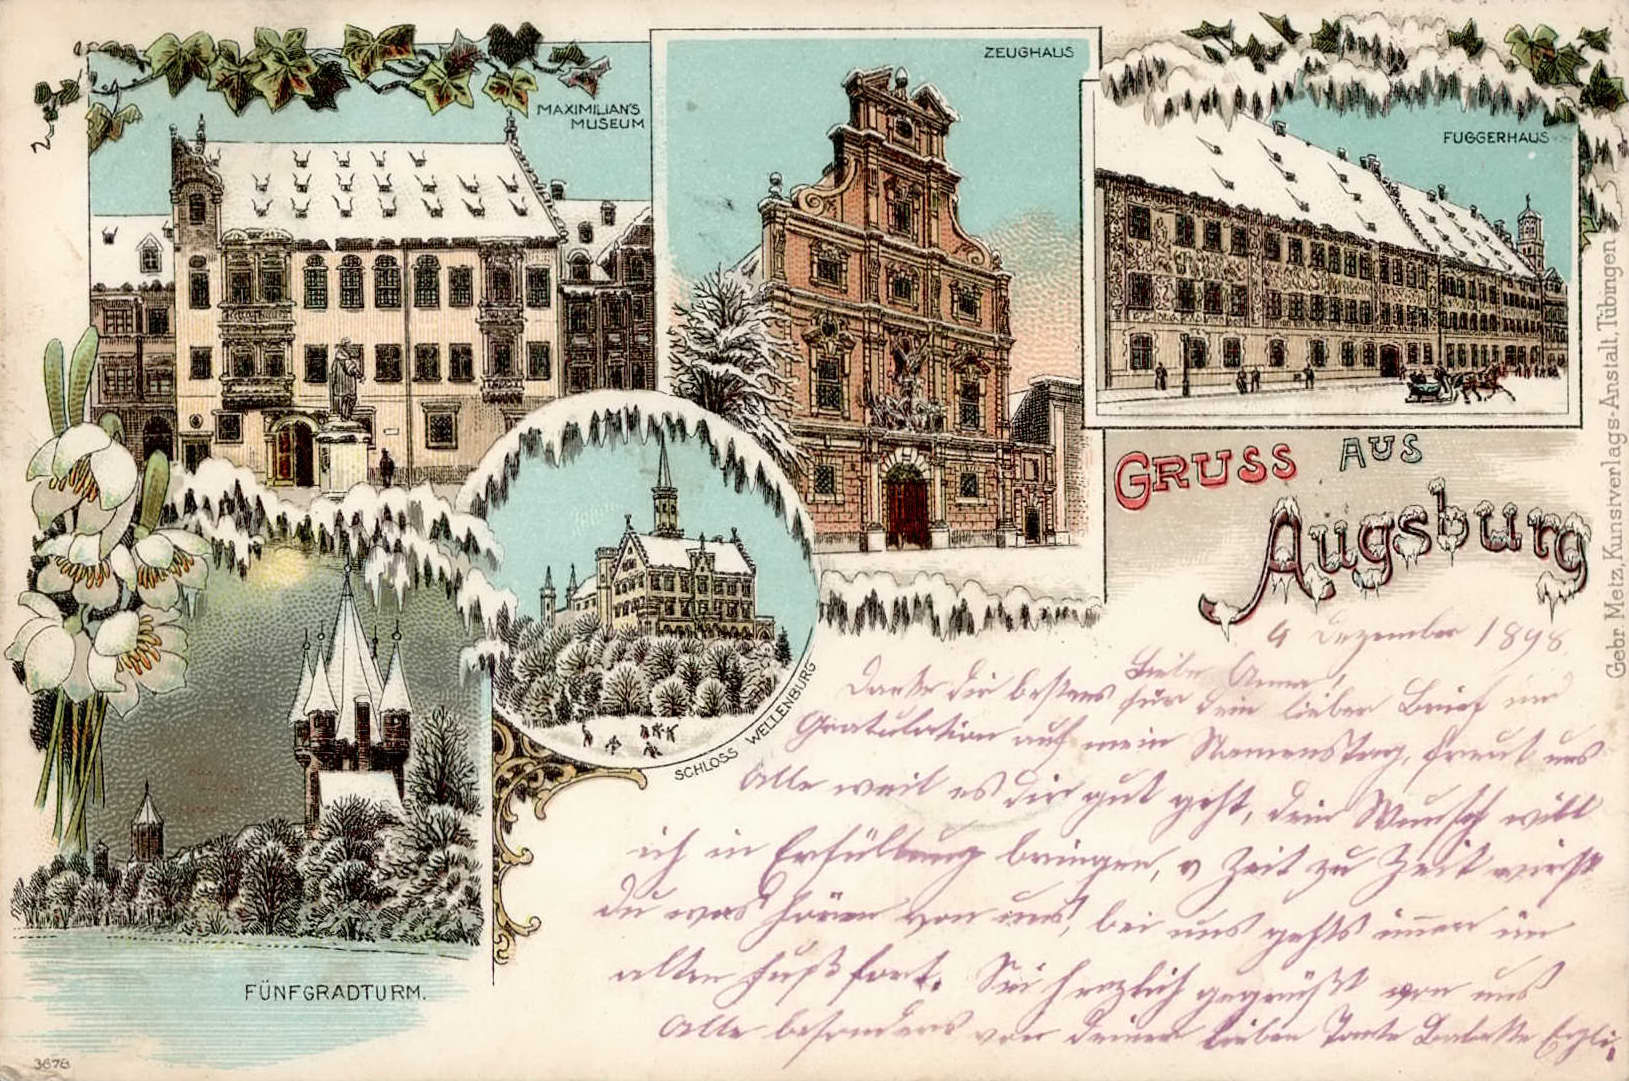 MAXIMILIAN'S
MUSEUM
ZEUGHAUS
FUGGERHAUS
GRUSS AUS
Augsburg
SCHLOSS WELLENBURG
FÜNFGRADTURM.
3678
Gebr. Metz, Kunstverlags-Anstalt, Tübingen
4 Dezember 1898
Liebe Anna!
Danke dir bestens für dein lieber Brief und
Gratulation auf mein Namenstag, freut uns
Alle weil es dir gut geht, dein Wunsch will
ich in Erfüllung bringen, v Zeit zu Zeit wirst
du was hören von uns, bei uns gehts immer im
alten Fuß fort. Sei herzlich gegrüßt von uns
Alle besonders von deiner lieben Tante Babette